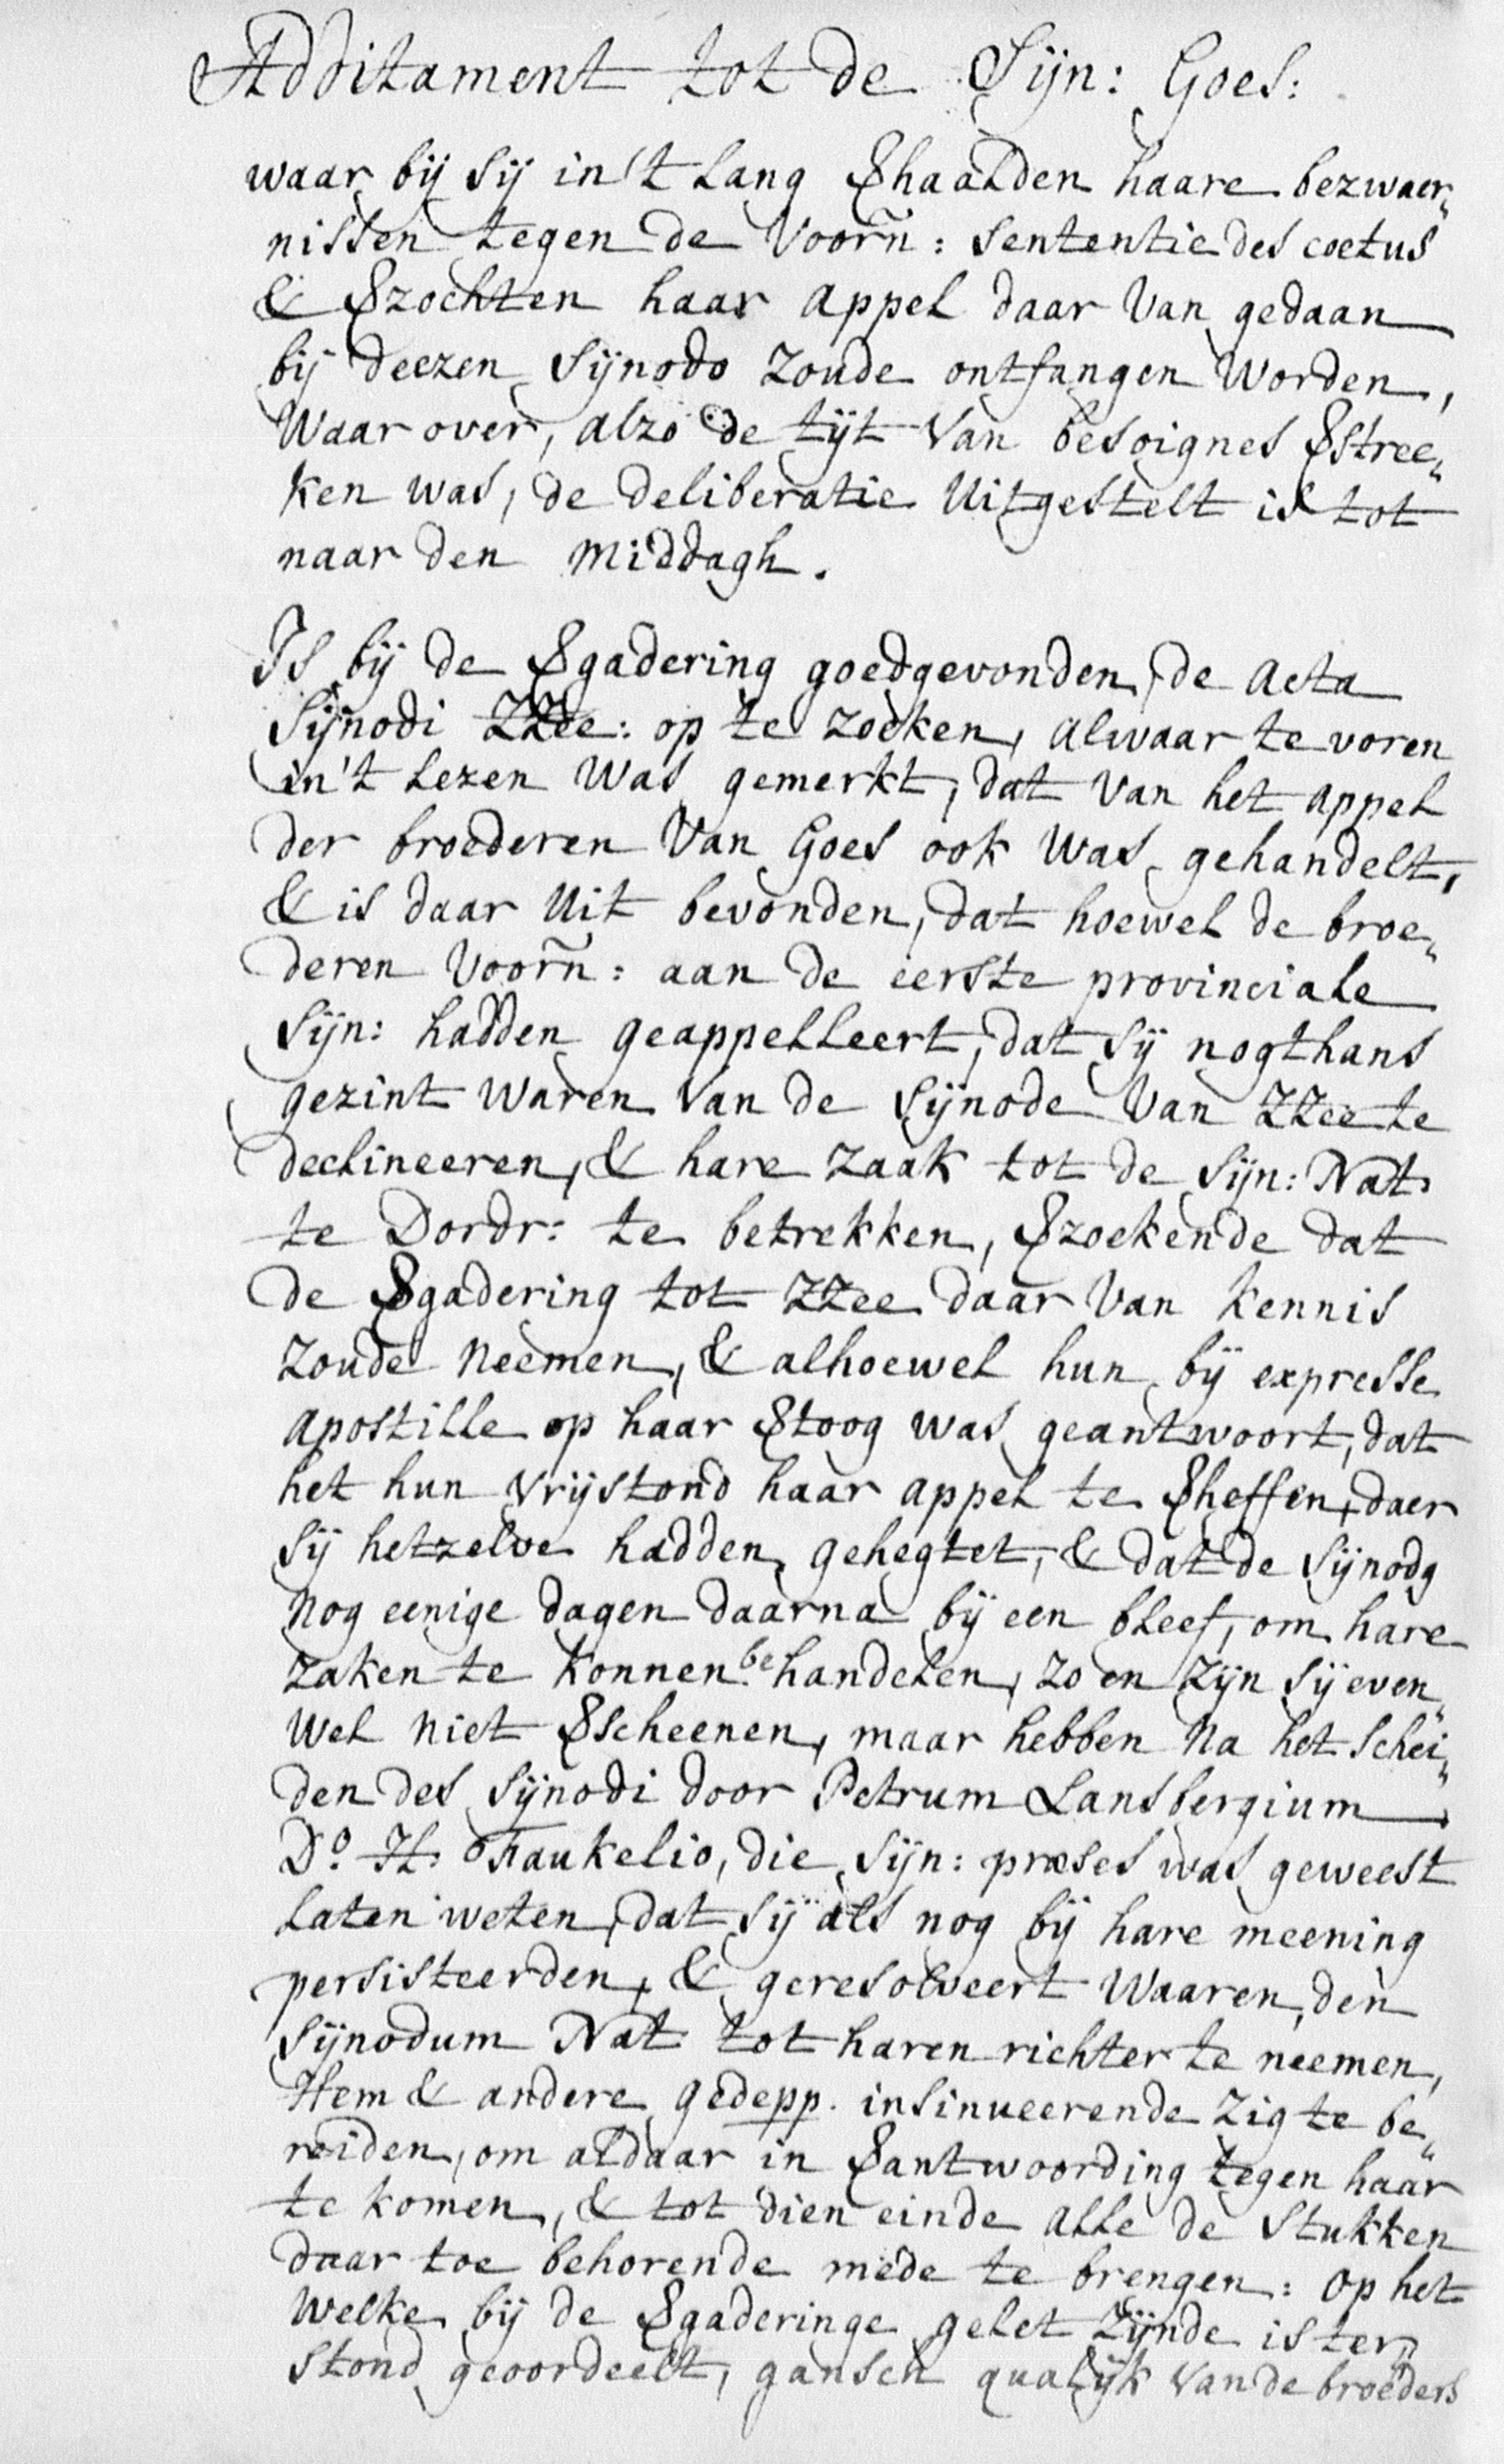 Additament tot de Sijn: Goes:
waar bij sij in 't lang Vhaalden haare bezwaer„
nissen tegen de Voorñ: sententie des coetus
& Vzochten haar appel daar Van gedaan
bij deezen Sijnodo zoude ontfangen Worden,
Waar over, alzo de tijt Van besoignes Vstree„
ken was, de deliberatie Uitgestelt is tot
naar den middagh.
Is bij de Vgadering goedgevonden, de acta
Sijnodi ZZee: op te zoeken, alwaar te voren
in 't lezen Was gemerkt, dat Van het appel
der broederen Van Goes ook Was gehandelt,
& is daar Uit bevonden, dat hoewel de broe„
deren Voorñ: aan de eerste provinciale
Sijn: hadden geappelleert, dat sij nogthans
gezint Waren Van de Sijnode Van ZZee te
declineeren, & hare zaak tot de Sijn: Nat.
te Dordr: te betrekken, Vzoekende dat
de Vgadering tot ZZee daar Van kennis
zoude neemen, & alhoewel hun bij expresse
apostille op haar Vtoog was geantwoort, dat
het hun Vrijstond haar appel te Vheffen, daer
sij hetzelve hadden gehegtet, & dat de Sijnodg
nog eenige dagen daarna bij een bleef, om hare
zaken te konnen behandelen, zo en zijn sij even„
wel niet Vscheenen, maar hebben na het schei„
den des Sijnodi door Petrum Lansbergium
Do. H. Faukelio, die Sijn: præses was geweest
laten weten, dat sij als nog bij hare meening
persisteerden, & geresolveert Waaren, den
Sijnodum Nat. tot haren richter te neemen,
Hem & andere gedepp. insinueerende zig te be„
reiden, om aldaar in Vantwoording tegen haar
te komen, & tot dien einde alle de stukken
daar toe behorende mede te brengen: op het
Welke bij de Vgaderinge gelet zijnde is ter„
stond geoordeelt, gansch qualijk Van de broeders